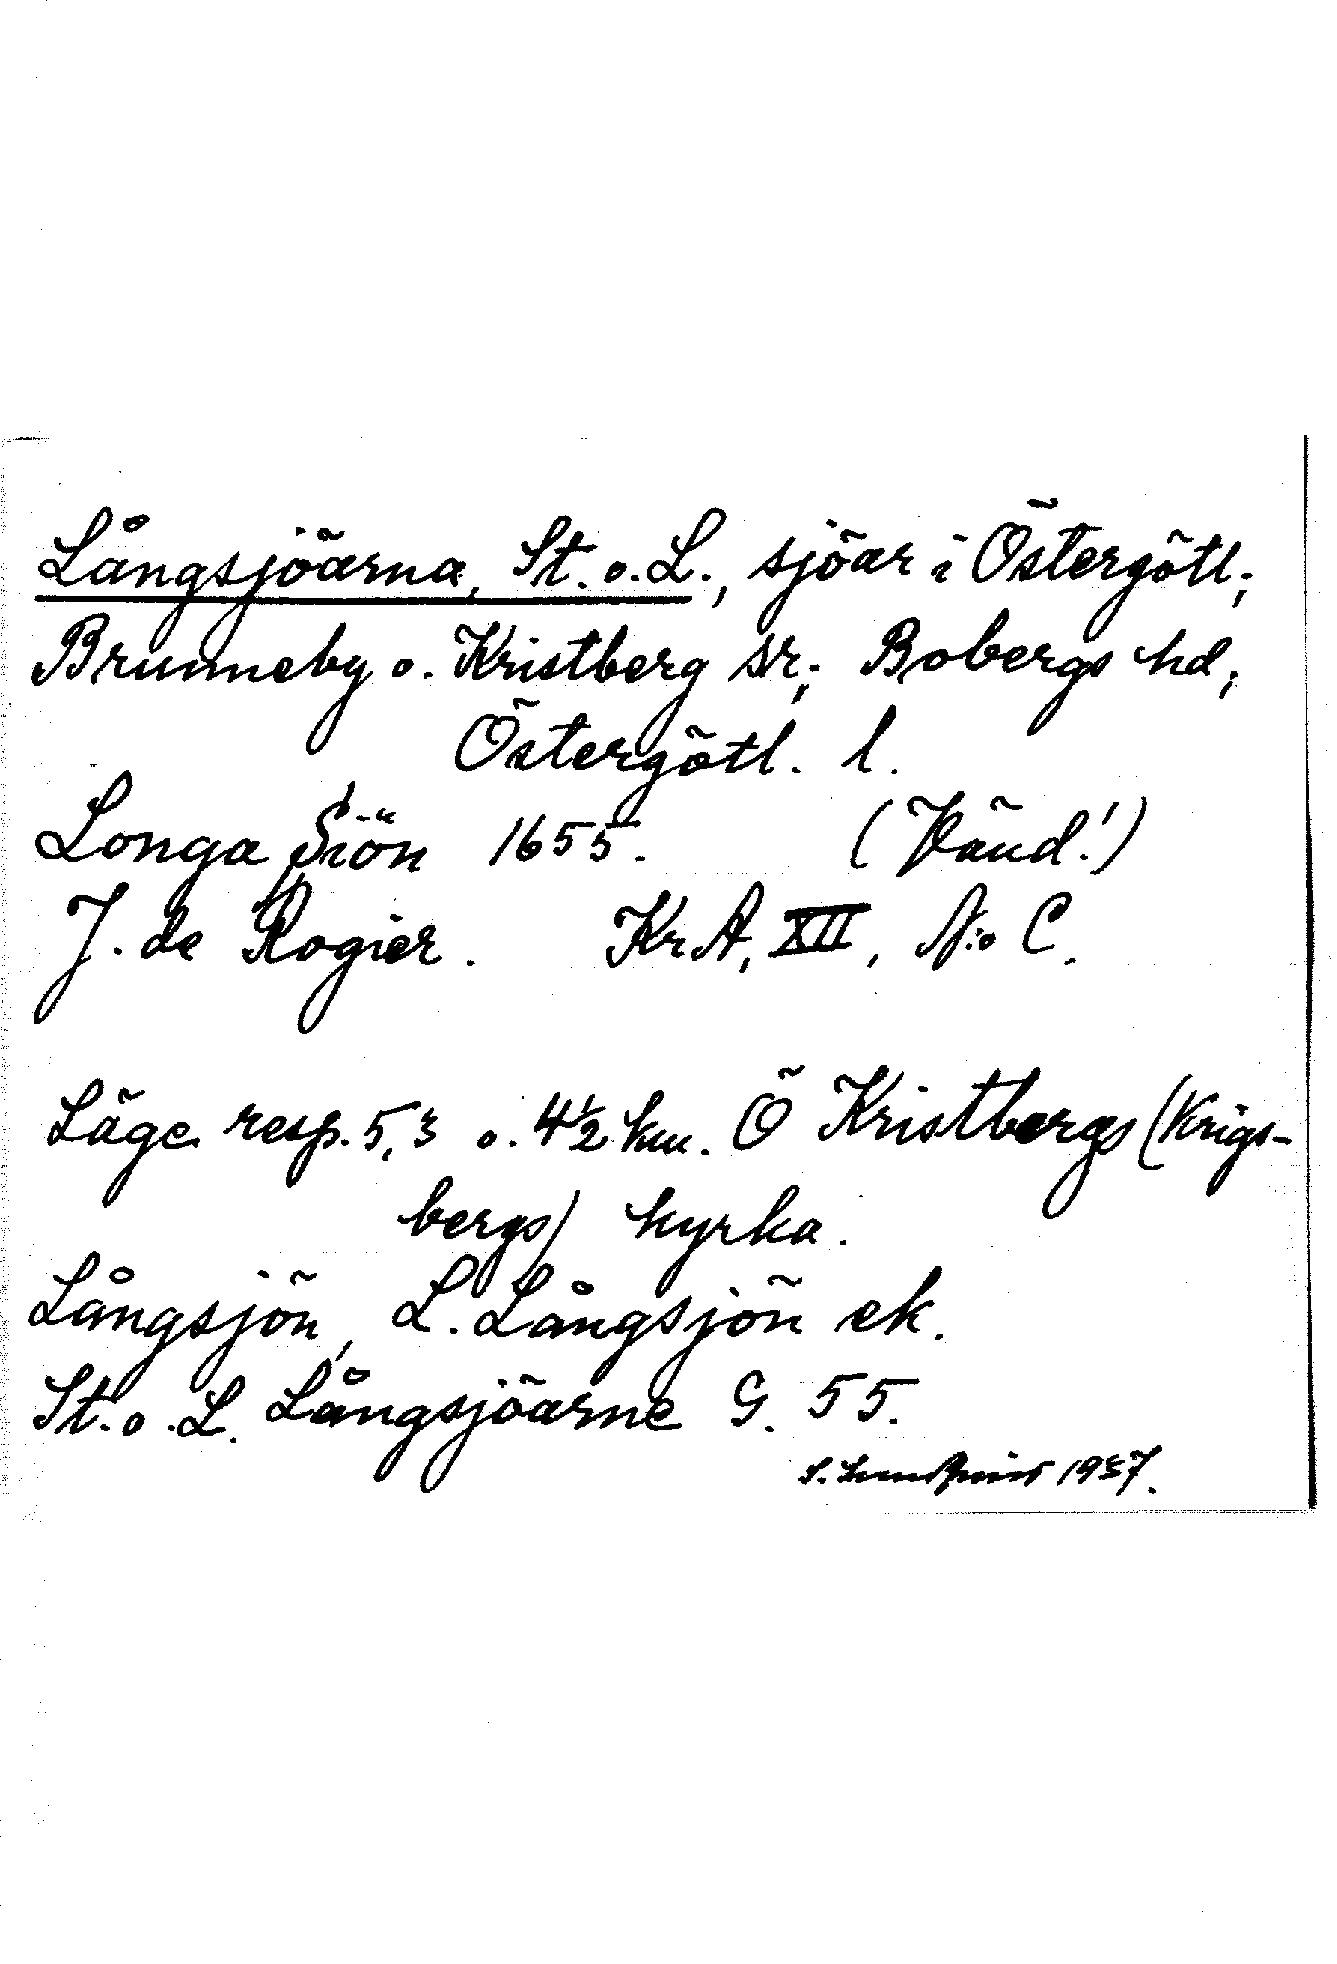 Långsjöarna, St. o. L., sjöar i Östergötl.;
Brunneby o. Kristberg sr; Bobergs hd;
Östergötl. l.
Longa Siön 1655. (Känd!)
J. de Rogier. KrA, XII, N:o C.
Läge resp. 5,3 o. 4½ km. Ö Kristbergs (Krigs-
bergs) kyrka.
Långsjön, L. Långsjön ek.
St. o. L. Långsjöarne G. 55.
S. Lundqvist 1937.